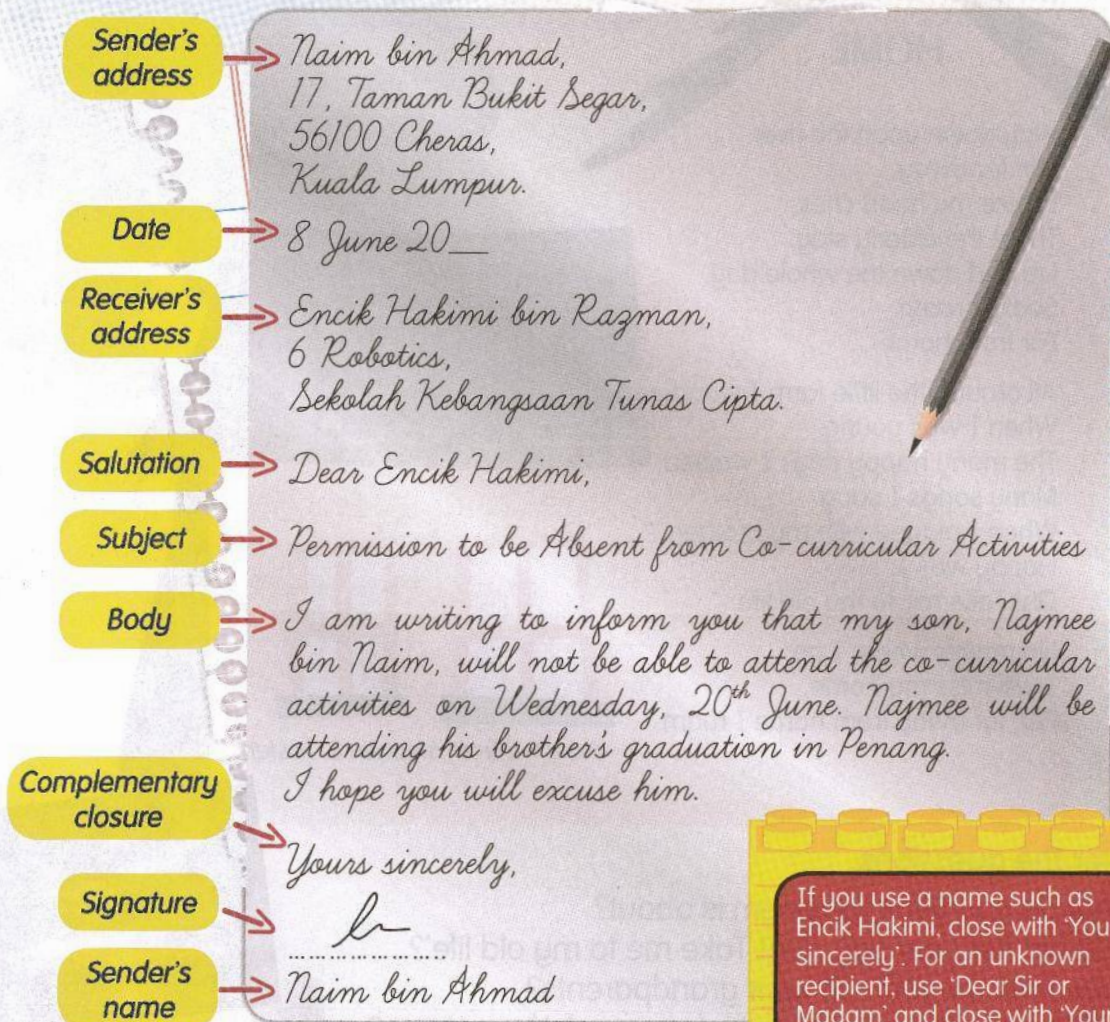 Sender's
address
Naim bin Ahmad,
17, Taman Bukit Segar,
56100 Cheras,
Kuala Lumpur.
Date
8 June 20__
Receiver's
address
Encik Hakimi bin Razman,
6 Robotics,
Sekolah Kebangsaan Tunas Cipta.
Salutation
Dear Encik Hakimi,
Subject
Permission to be Absent from Co-curricular Activities
Body
I am writing to inform you that my son, Najmee
bin Naim, will not be able to attend the co-curricular
activities on Wednesday, 20th June. Najmee will be
attending his brother's graduation in Penang.
I hope you will excuse him.
Complementary
closure
Yours sincerely,
Signature
Sender's
name
Naim bin Ahmad
If you use a name such as
Encik Hakimi, close with 'You
sincerely'. For an unknown
recipient, use 'Dear Sir or
Madam' and close with 'You